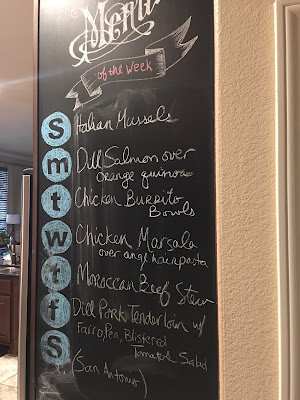 Menu
of the week
S Italian Mussels
m Dill Salmon over
orange quinoa
t Chicken Burrito
Bowls
w Chicken Marsala
over angel hair pasta
t Moroccan Beef Stew
f Dill Pork Tenderloin w/
Farro, Pea, Blistered
Tomatoe Salad
S (San Antonio)